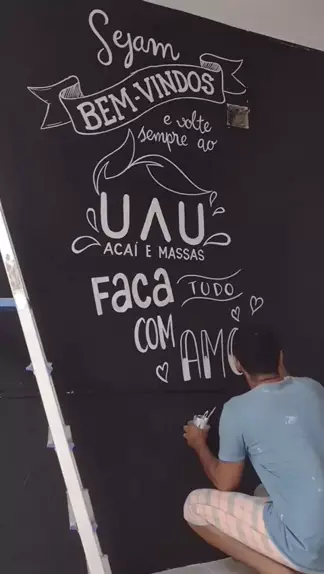 Sejam
BEM-VINDOS
e volte
sempre ao
UAU
AÇAÍ E MASSAS
FAÇA TUDO
COM AMO